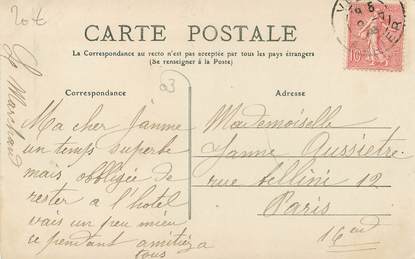 20€
CARTE POSTALE
La Correspondance au recto n'est pas acceptée par tous les pays étrangers
(Se renseigner à la Poste)
Correspondance
Adresse
93
Ma cher Jeanne
un temps superbe
mais obligée de
rester a l'hotel
vais un peu mieu
ce pendant amitiéza
tous
L. Marchand
Mademoiselle
Jeanne Aussietre
rue Bellini 12
Paris
16em